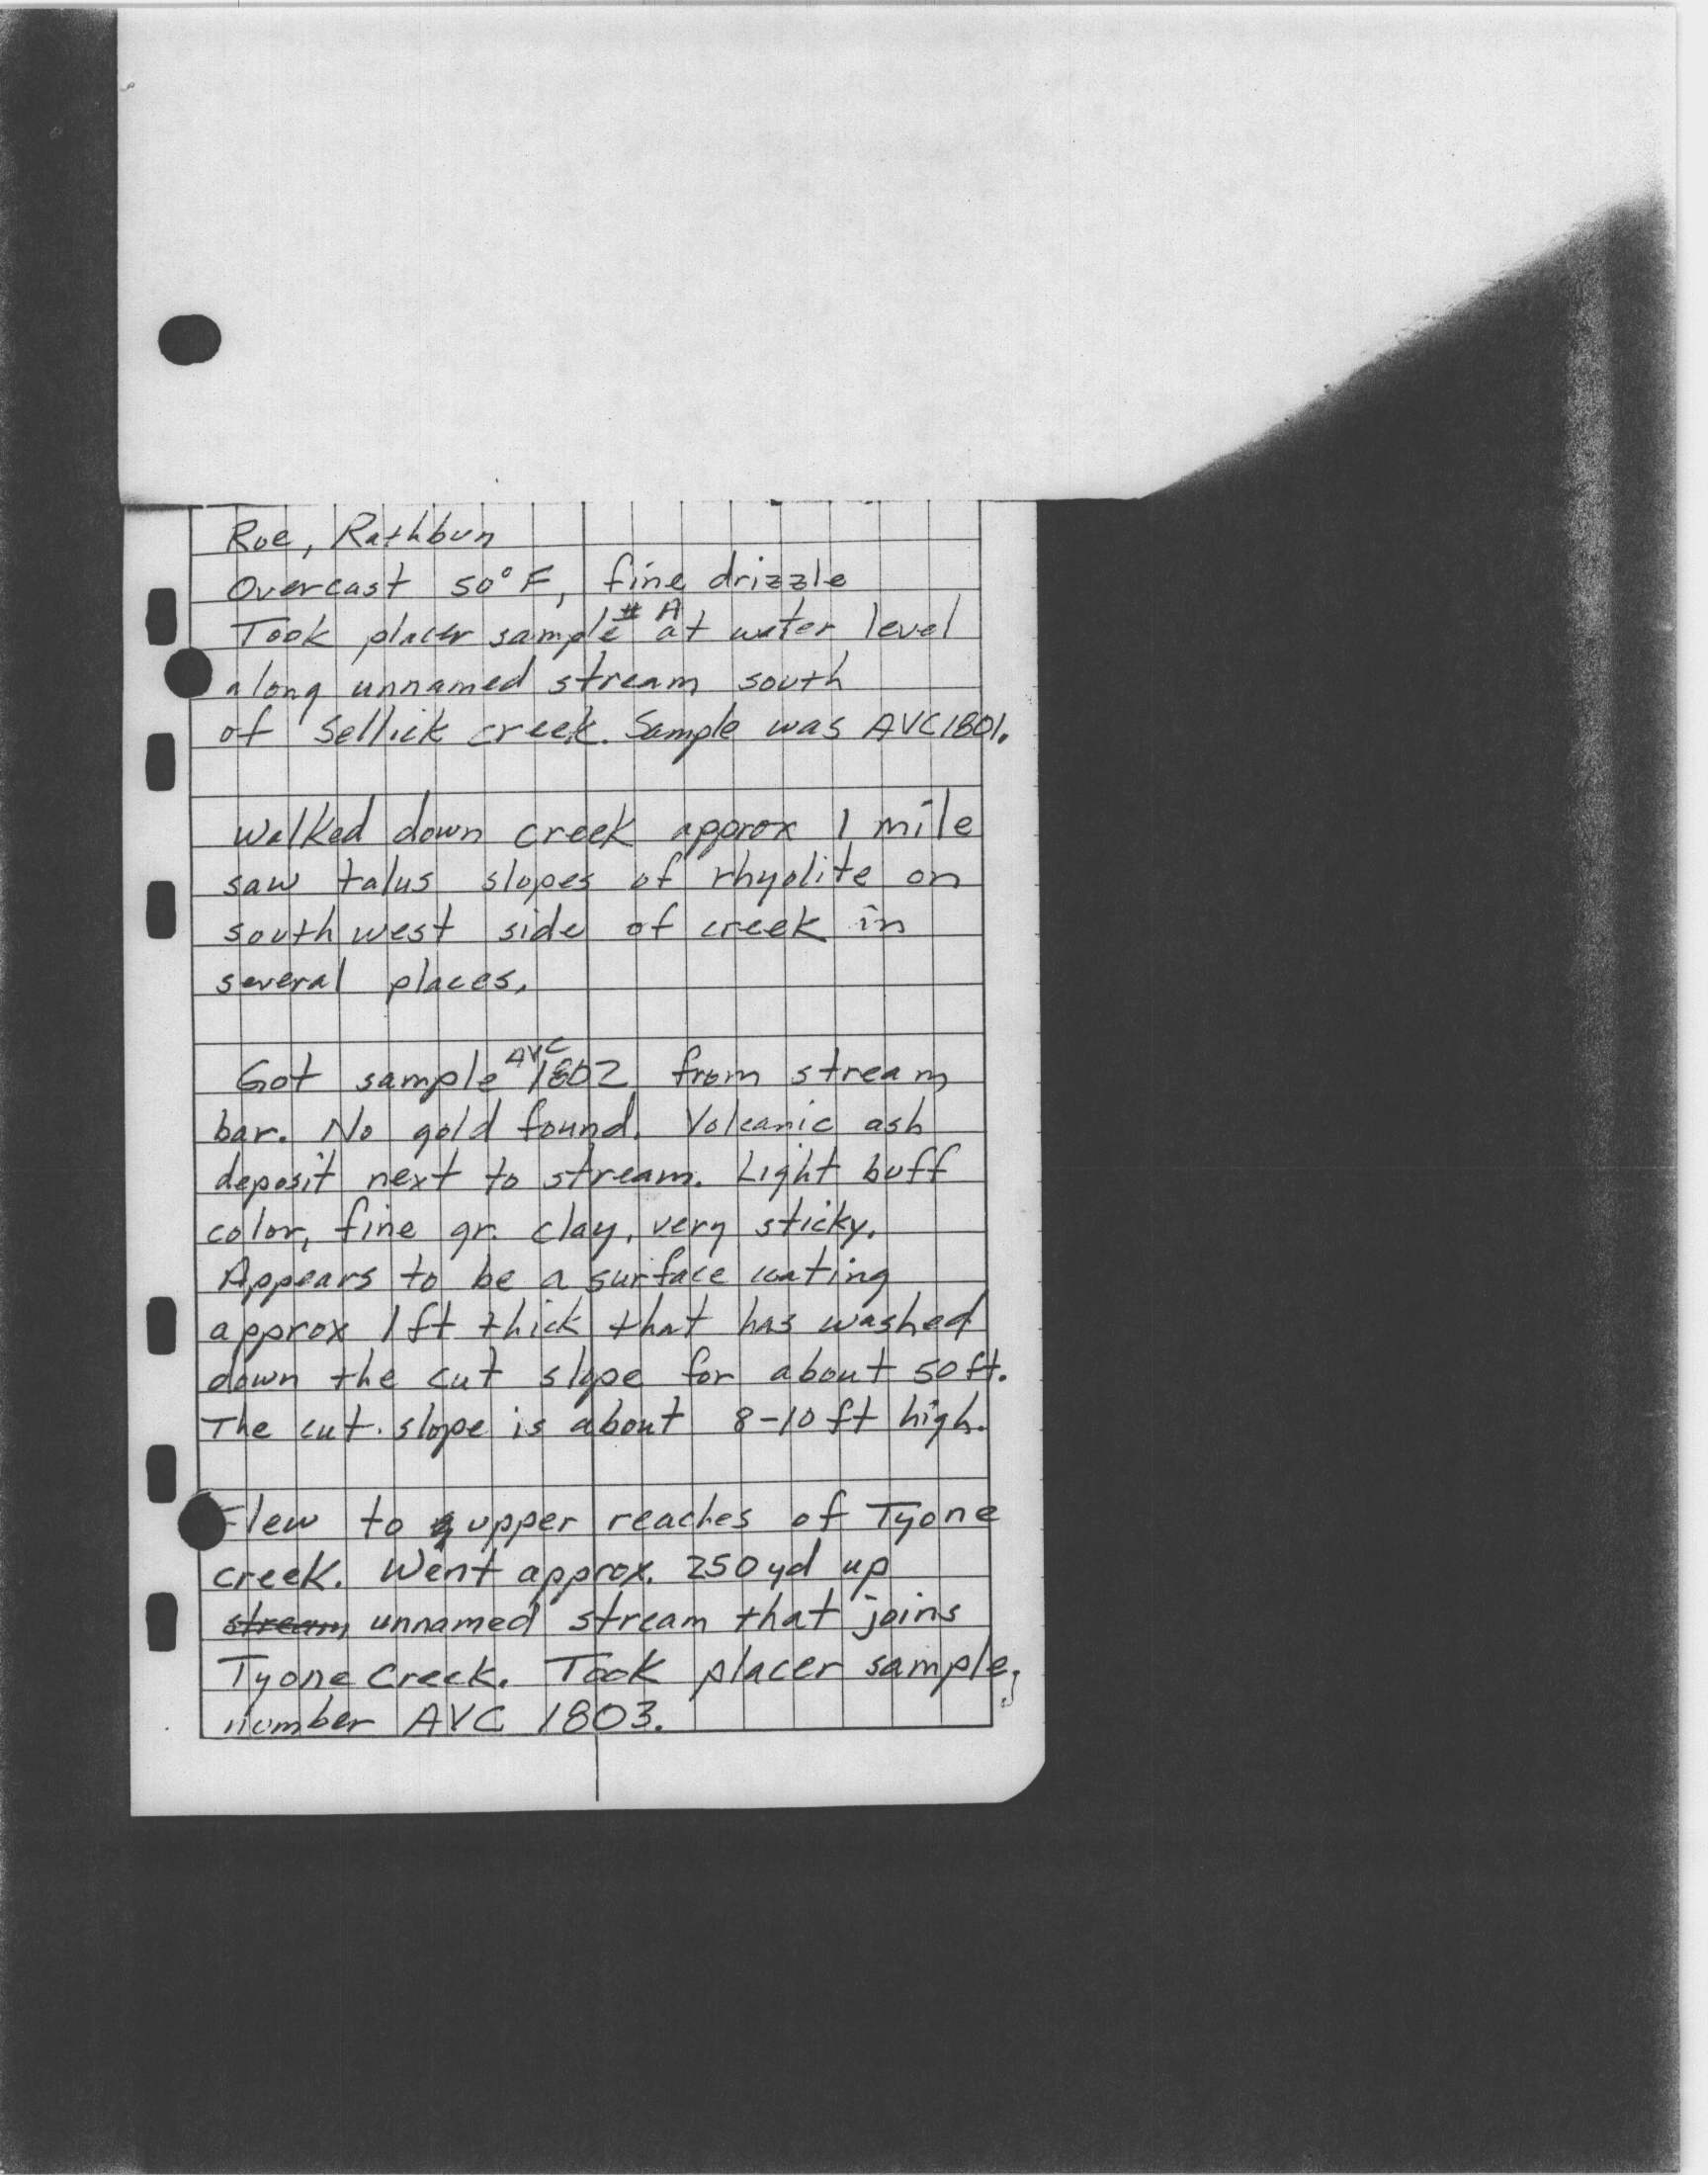 Roe, Rathbun
Overcast 50°F, fine drizzle
Took placer sample # A at water level
along unnamed stream south
of Sellick creek. Sample was AVC1801.
Walked down creek approx 1 mile
saw talus slopes of rhyolite on
southwest side of creek in
several places.
Got sample AVC 1802 from stream
bar. No gold found. Volcanic ash
deposit next to stream. Light buff
color, fine gr. clay, very sticky.
Appears to be a surface coating
approx 1ft thick that has washed
down the cut slope for about 50ft.
The cut slope is about 8-10ft high.
Flew to upper reaches of Tyone
creek. Went approx. 250yd up
stream unnamed stream that joins
Tyone Creek. Took placer sample,
number AVC 1803.